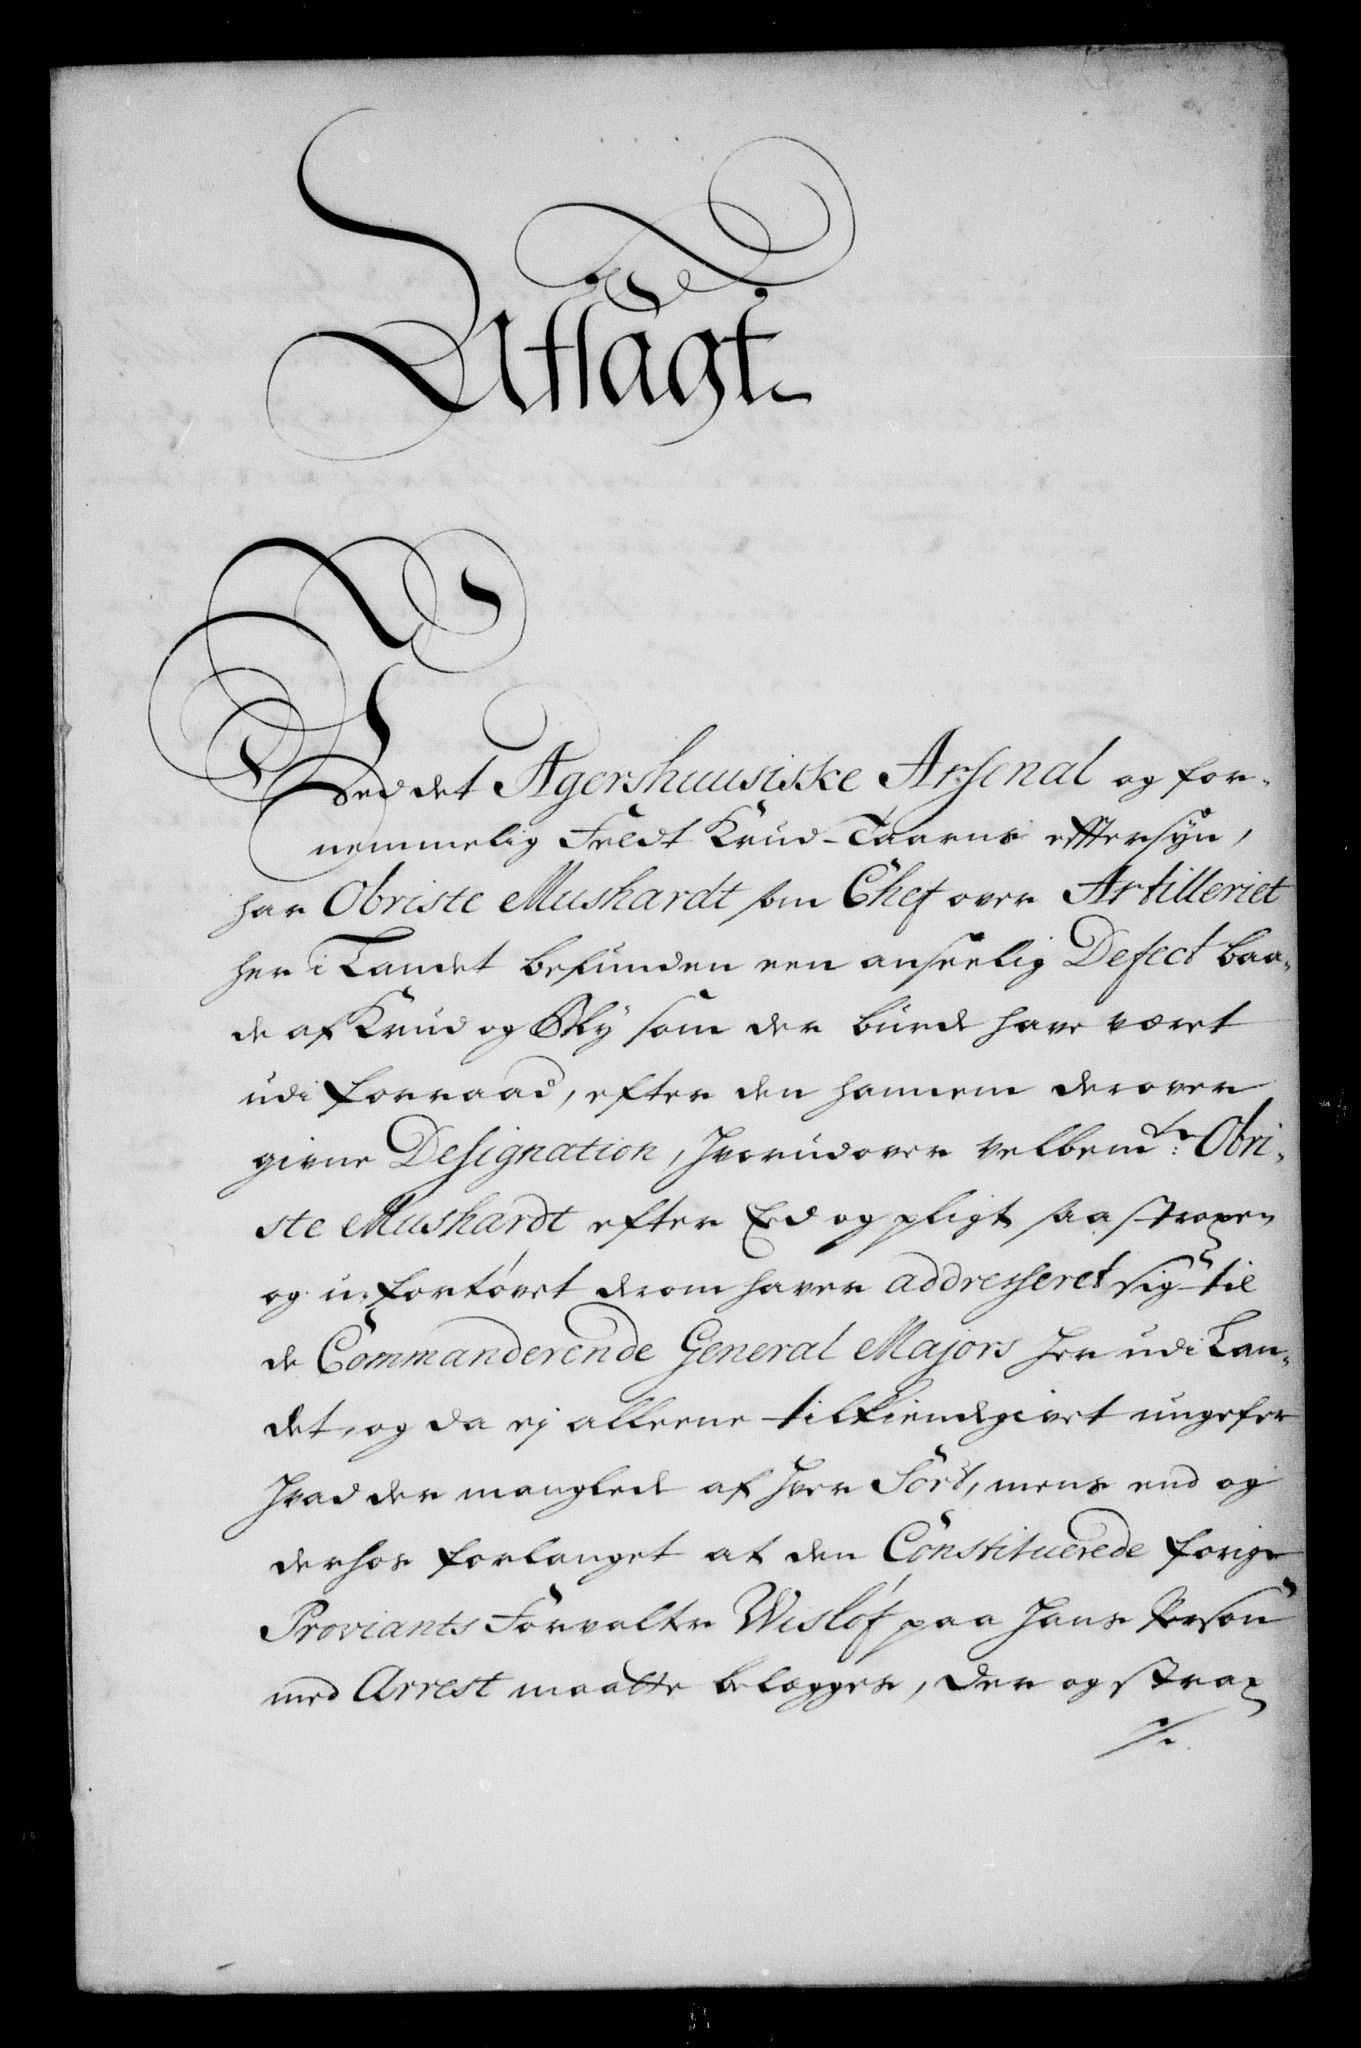 Udsagt
Ved det Agershuusiske Arsenal og for-
nemmelig Feldt Krud-Taarns efftersyn,
har Obriste Mushardt som Chef over Artilleriet
her i Landet befunden een anseelig Defect baa-
de af Krud og Bly som der burde have været
udi forraad, efter den hannem derover
givne Designation, hvorudover Velbemte: Obri-
ste Mushardt efter Eed og pligt saa straxen
og ufortøvet derom haver addresseret sig til
de Commanderende General Majors her udi Lan-
det, og da ej alleene tilkiendegivet ungefer
hvad der manglede af hver Sort, mens end og
derhos forlanget at den Constituerede forige
Proviants Forvalter Wisløf paa hans Person
med Arrest maatte belægges, der og strax